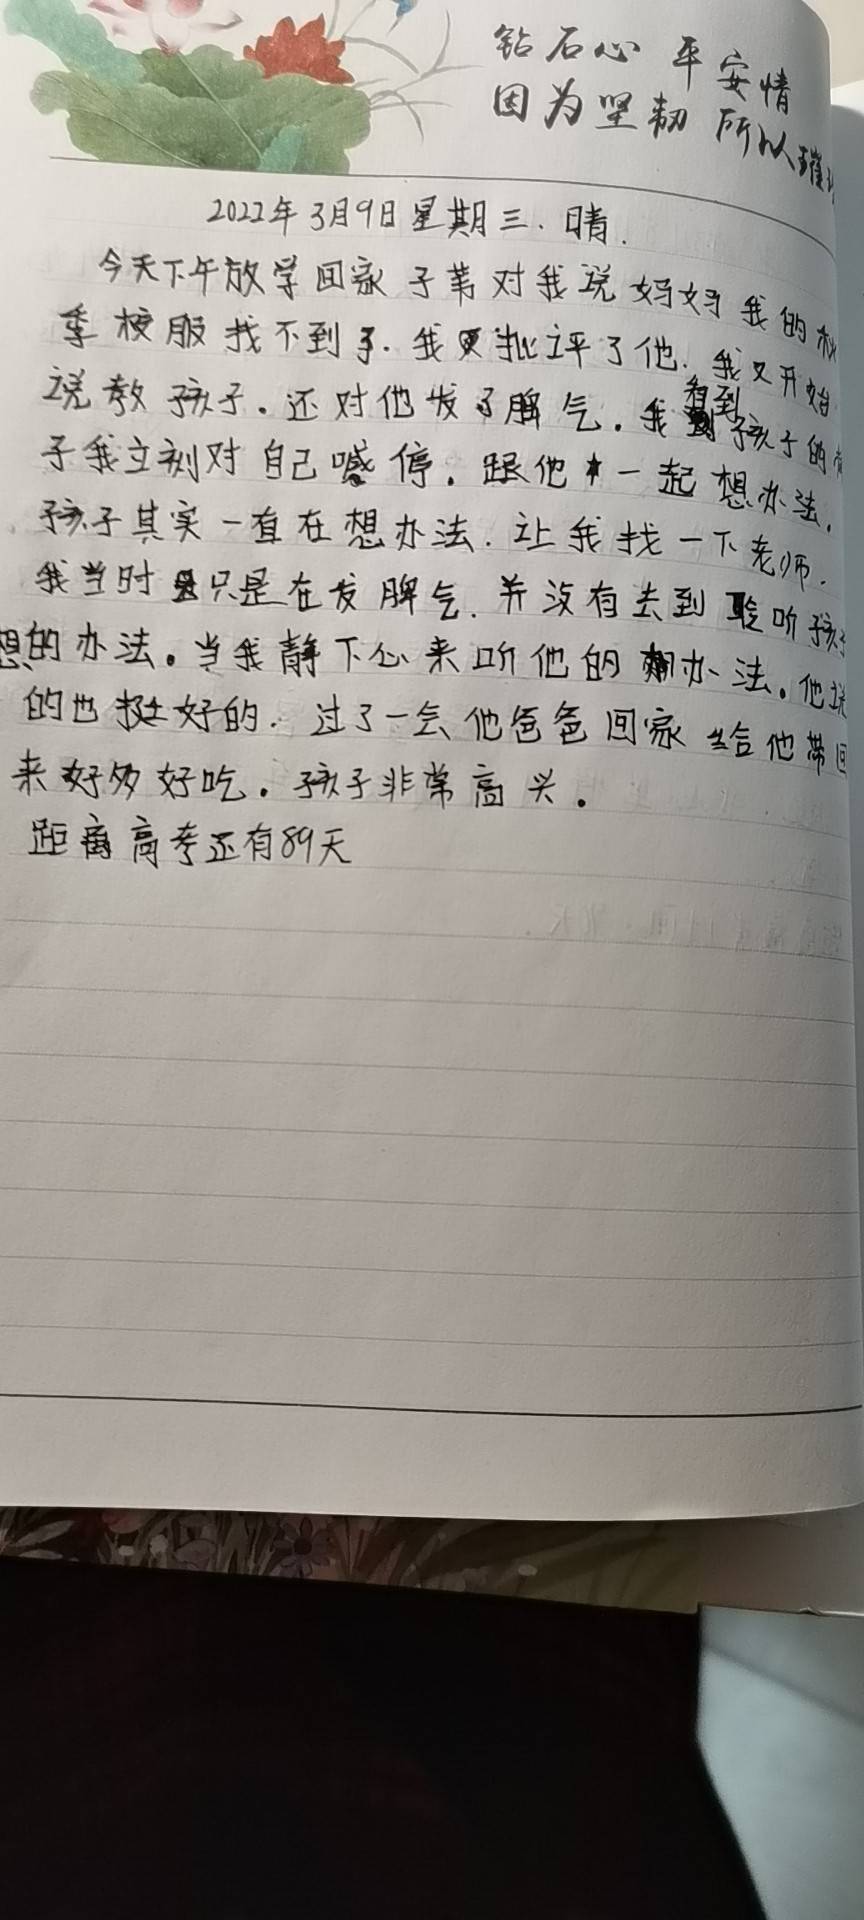 钻石心 平安情
因为坚韧 所以璀
2022年3月9日星期三.晴.
今天下午放学回家子苇对我说妈妈我的秋
季校服找不到了.我又批评了他.我又开始
说教孩子。还对他发了脾气。我看到孩子的
子我立刻对自己喊停.跟他一起想办法.
孩子其实一直在想办法.让我找一下老师.
我当时只是在发脾气.并没有去到聆听孩子
想的办法。当我静下心来听他的办法。他说
的也挺好的.过了一会他爸爸回家给他带回
来好多好吃。孩子非常高兴。
距离高考还有89天